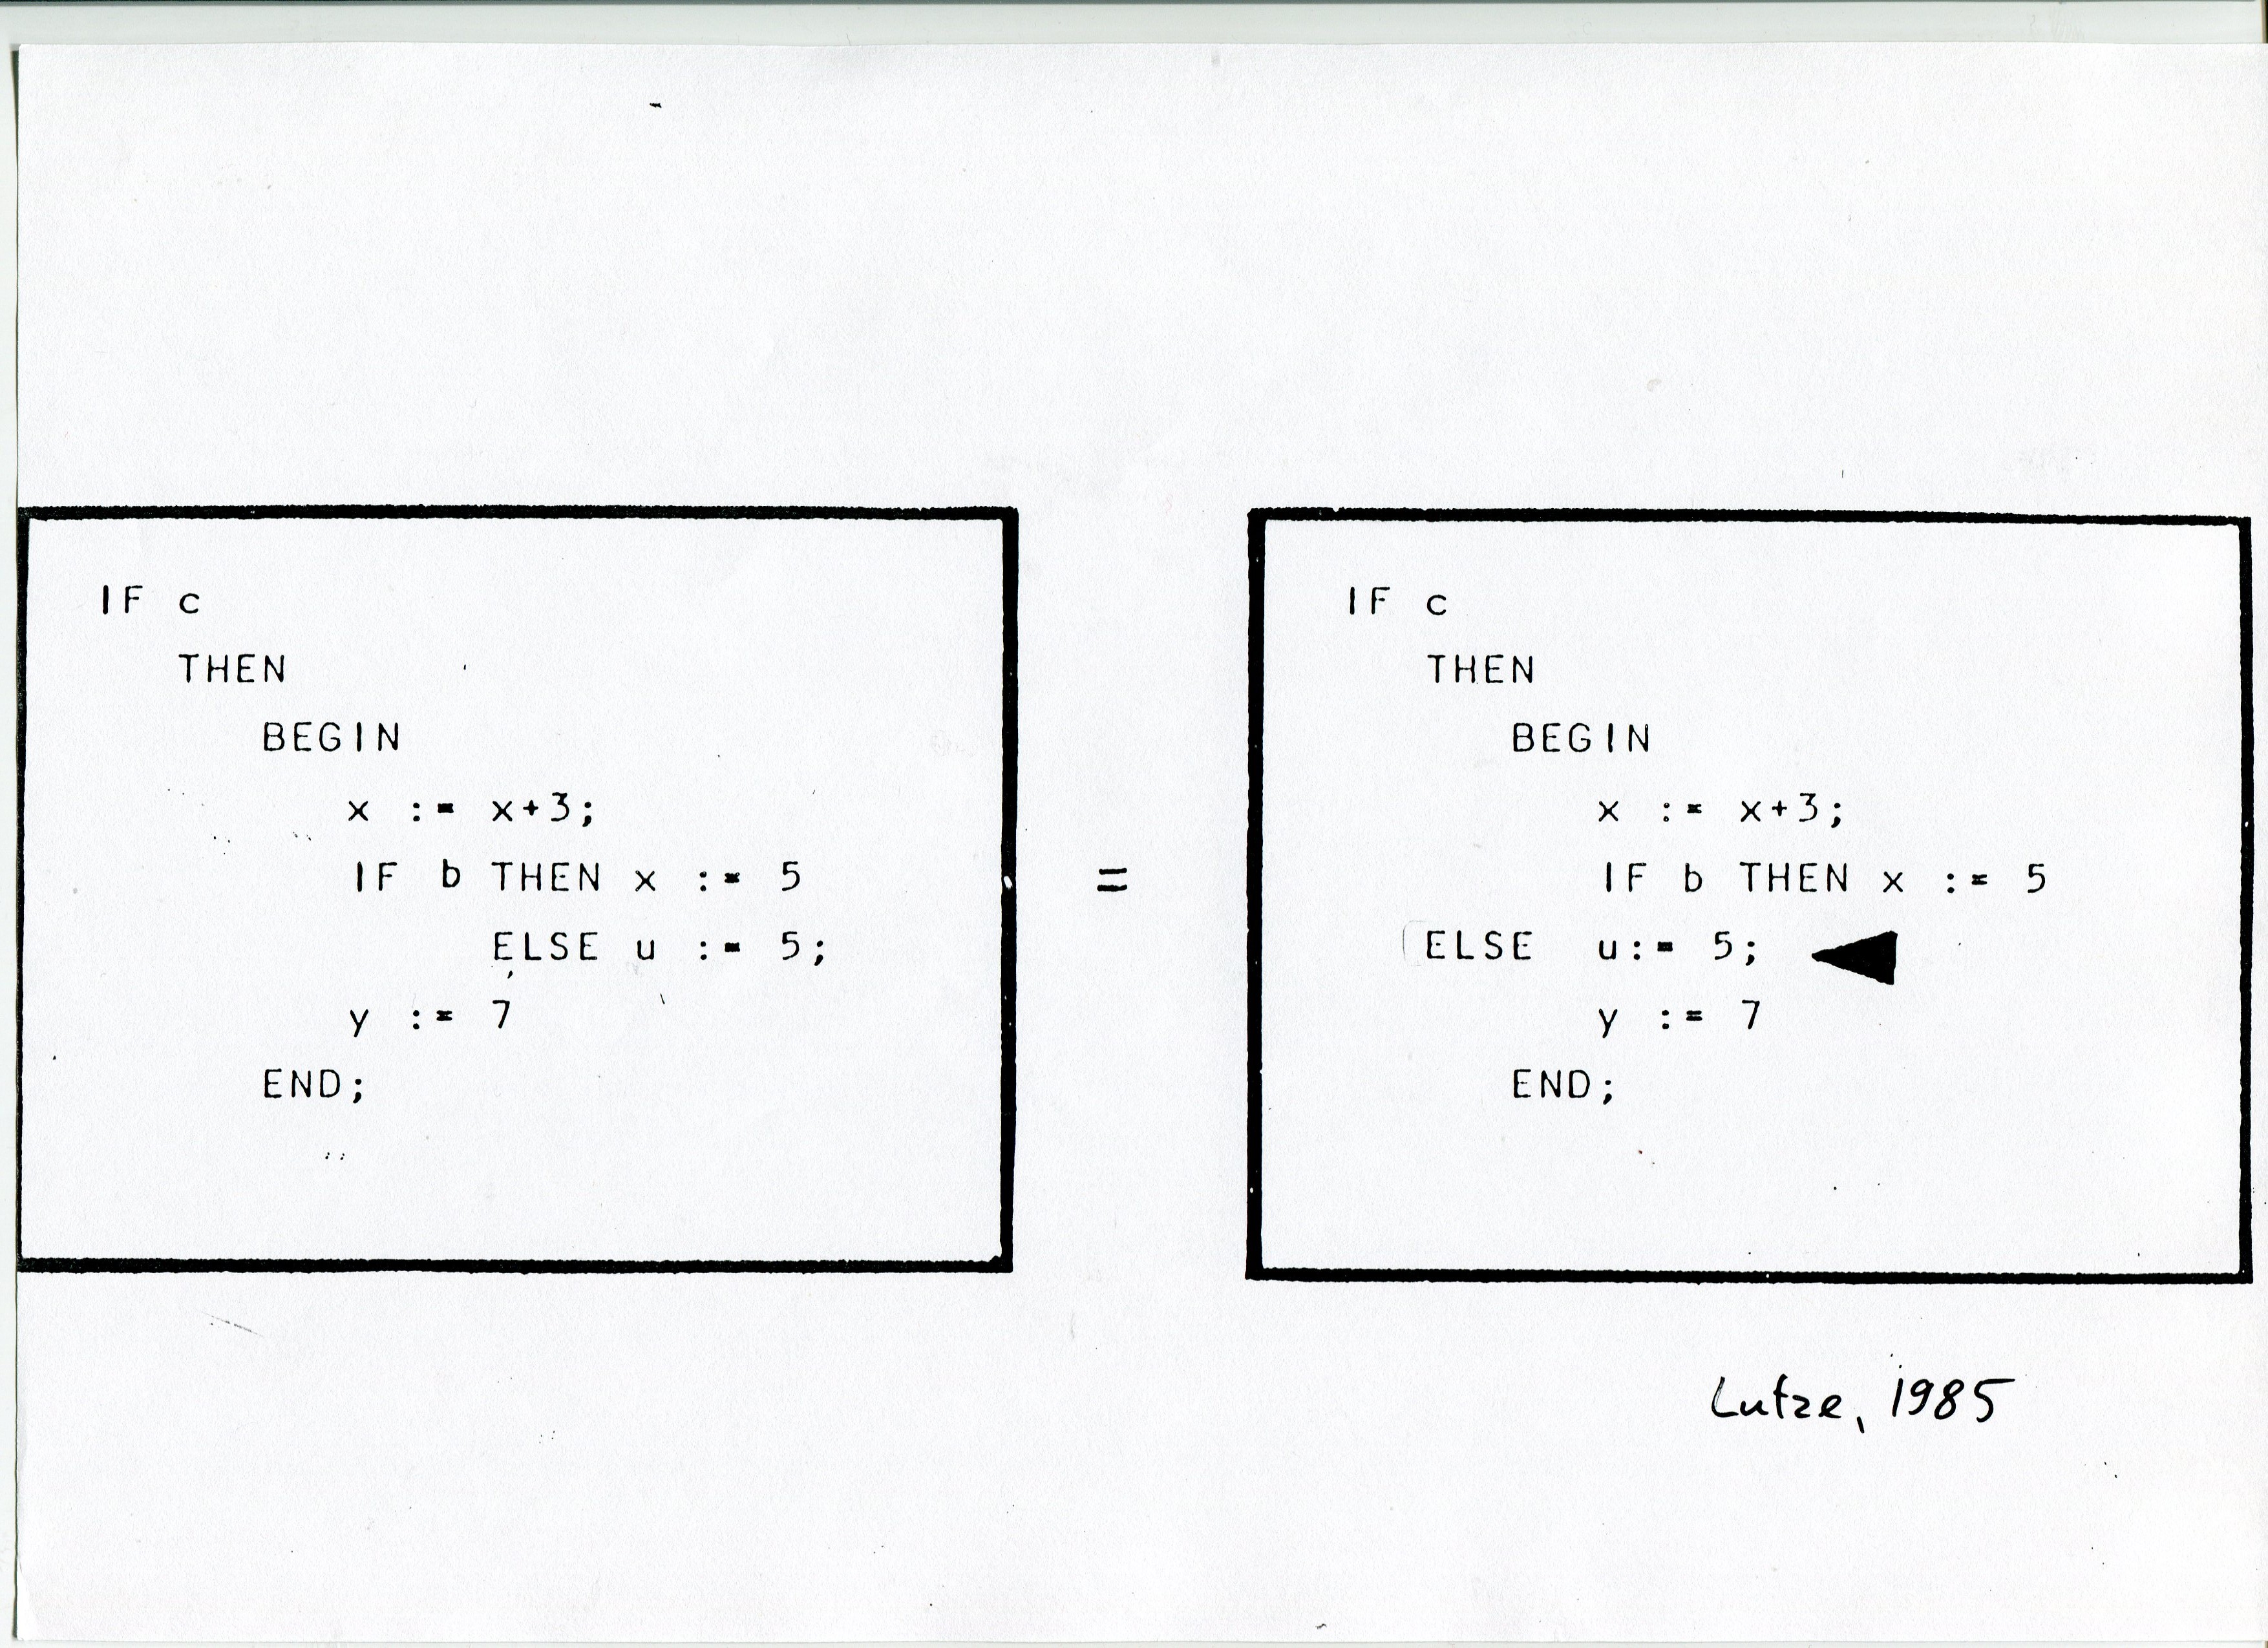 IF c
THEN
BEGIN
x := x+3;
IF b THEN x := 5
ELSE u := 5;
y := 7
END;
=
IF c
THEN
BEGIN
x := x+3;
IF b THEN x := 5
ELSE u:= 5;
y := 7
END;
Lutze, 1985